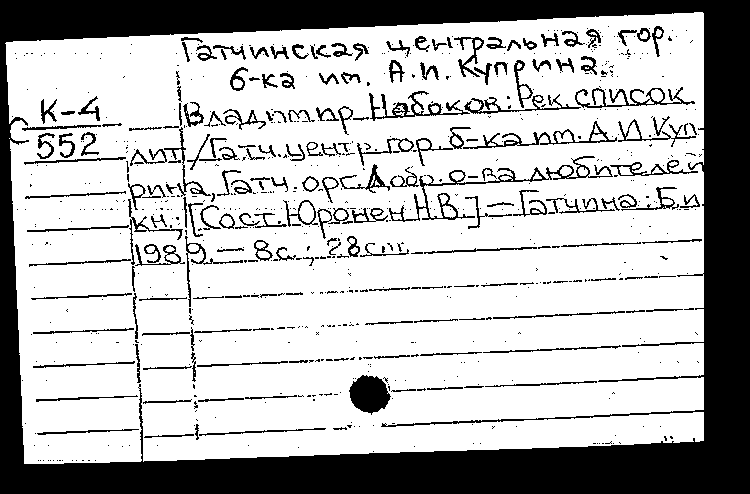 Гатчинская центральная гор.
б-ка им. А.И. Куприна.
К-4
552
Владимир Набоков: Рек. список
лит./Гатч. центр. гор. б-ка им. А.И. Куп-
рина, Гатч. орг. Добр. о-ва любителей
кн.; [Сост. Юронен Н.В.]. — Гатчина: Б.и
1989. — 8с.; 28см.